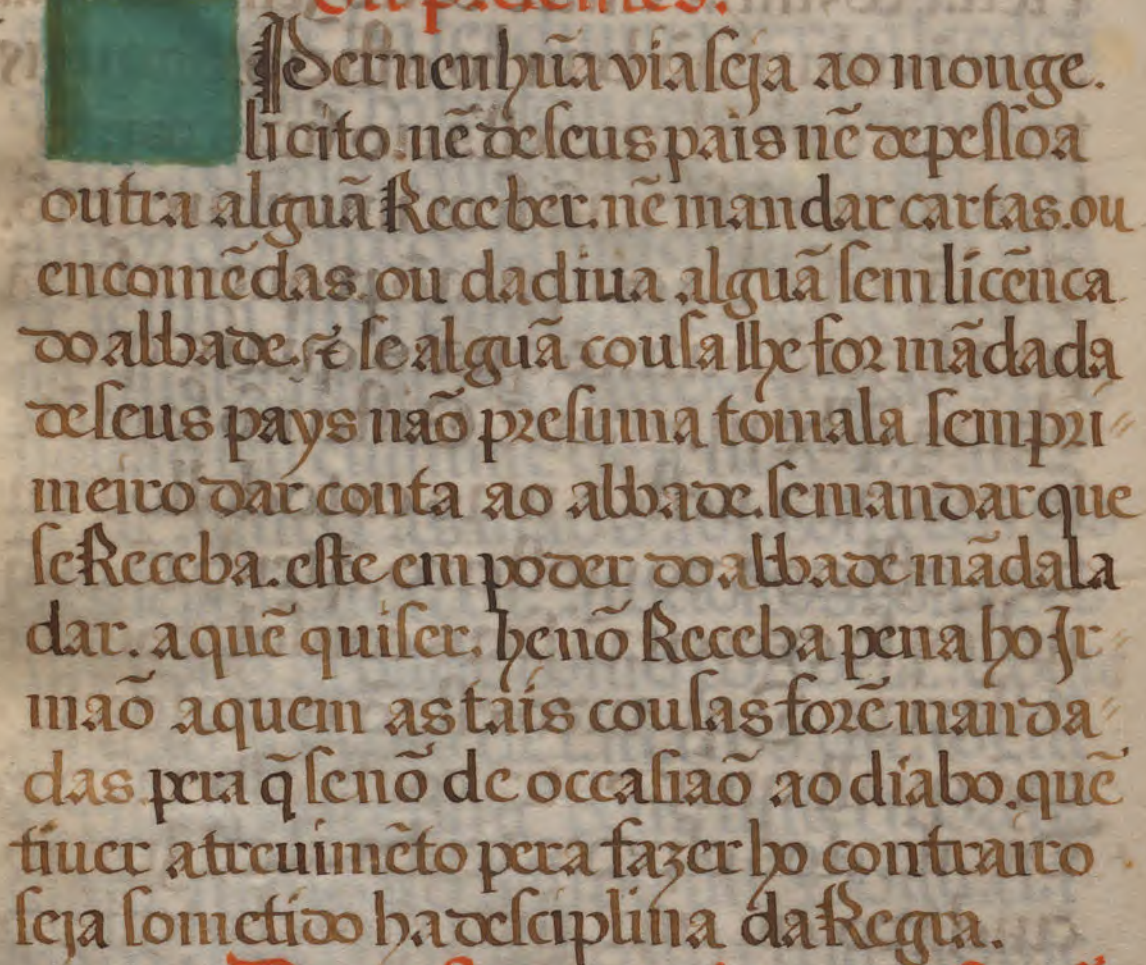 ou presentes.
Per nenhũa via seja ao monge.
licito. nẽ de seus pais nẽ de pessoa
outra algũa Receber. nẽ mandar cartas. ou
encomẽdas. ou dadiua alguã sem licẽnca
do abbade. & se alguã cousa lhe for mãdada
de seus pays naõ presuma tomala sem pri
meiro dar conta ao abbade. se mandar que
se Receba. este em poder do abbade mãdala
dar. a quẽ quiser. he nõ Receba pena ho Jr
maõ aquem as tais cousas forẽ manda
das pera q̃ se nõ de occasiaõ ao diabo. quẽ
tiuer atreuimẽto pera fazer ho contrairo
seja sometido ha desciplina da Regra.